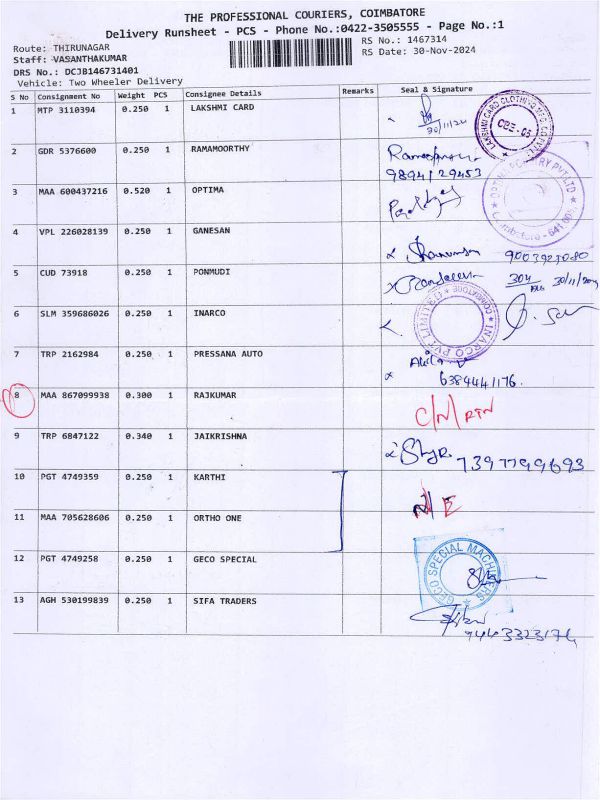 THE PROFESSIONAL COURIERS, COIMBATORE
Delivery Runsheet - PCS - Phone No.:0422-3505555 - Page No.:1
Route: THIRUNAGAR
RS No.: 1467314
Staff: VASANTHAKUMAR
RS Date: 30-Nov-2024
DRS No.: DCJB146731401
Vehicle: Two Wheeler Delivery
S No Consignment No Weight PCS Consignee Details Remarks Seal & Signature
1 MTP 3110394 0.250 1 LAKSHMI CARD
30/11/24
2 GDR 5376600 0.250 1 RAMAMOORTHY
98941 29453
3 MAA 600437216 0.520 1 OPTIMA
4 VPL 226028139 0.250 1 GANESAN
5 CUD 73918 0.250 1 PONMUDI
304 30/11/2024
6 SLM 359686026 0.250 1 INARCO
INARCO PVT LIMITED COIMBATORE
7 TRP 2162984 0.250 1 PRESSANA AUTO
6384441176.
8 MAA 867099938 0.300 1 RAJKUMAR C/N/RTN
9 TRP 6847122 0.340 1 JAIKRISHNA
7397799693
10 PGT 4749359 0.250 1 KARTHI
N/E
11 MAA 705628606 0.250 1 ORTHO ONE
12 PGT 4749258 0.250 1 GECO SPECIAL
GECO SPECIAL MACHINERS
13 AGH 530199839 0.250 1 SIFA TRADERS